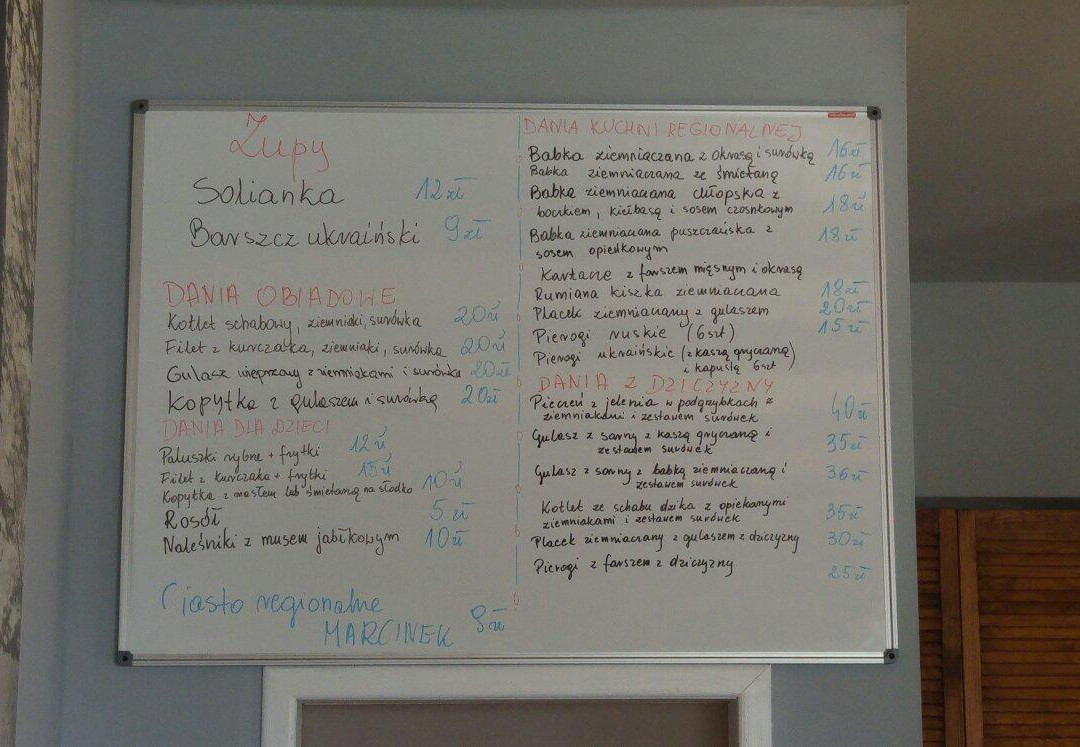 Zupy
Solianka 12 zł
Barszcz ukraiński 9 zł
DANIA OBIADOWE
Kotlet schabowy, ziemniaki, surówka 20 zł
Filet z kurczaka, ziemniaki, surówka 20 zł
Gulasz wieprzowy z ziemniakami i surówką 20 zł
Kopytka z gulaszem i surówką 20 zł
DANIA DLA DZIECI
Paluszki rybne + frytki 12 zł
Filet z kurczaka + frytki 15 zł
Kopytka z masłem lub śmietaną na słodko 10 zł
Rosół 5 zł
Naleśniki z musem jabłkowym 10 zł
Ciasto regionalne
MARCINEK 9 zł
DANIA KUCHNI REGIONALNEJ
Babka ziemniaczana z okrasą i surówką 16 zł
Babka ziemniaczana ze śmietaną 16 zł
Babka ziemniaczana chłopska z
boczkiem, kiełbasą i sosem czosnkowym 18 zł
Babka ziemniaczana puszczańska z 18 zł
sosem opieńkowym
Kartacze z farszem mięsnym i okrasą
Rumiana kiszka ziemniaczana 18 zł
Placek ziemniaczany z gulaszem 20 zł
Pierogi ruskie (6szt) 15 zł
Pierogi ukraińskie (z kaszą gryczaną
i kapustą 6szt)
DANIA Z DZICZYZNY
Pieczeń z jelenia w podgrzybkach z
ziemniakami i zestawem surówek 40 zł
Gulasz z sarny z kaszą gryczaną i
zestawem surówek 35 zł
Gulasz z sarny z babką ziemniaczaną i
zestawem surówek 36 zł
Kotlet ze schabu dzika z opiekanymi
ziemniakami i zestawem surówek 35 zł
Placek ziemniaczany z gulaszem z dziczyzny 30 zł
Pierogi z farszem z dziczyzny 25 zł